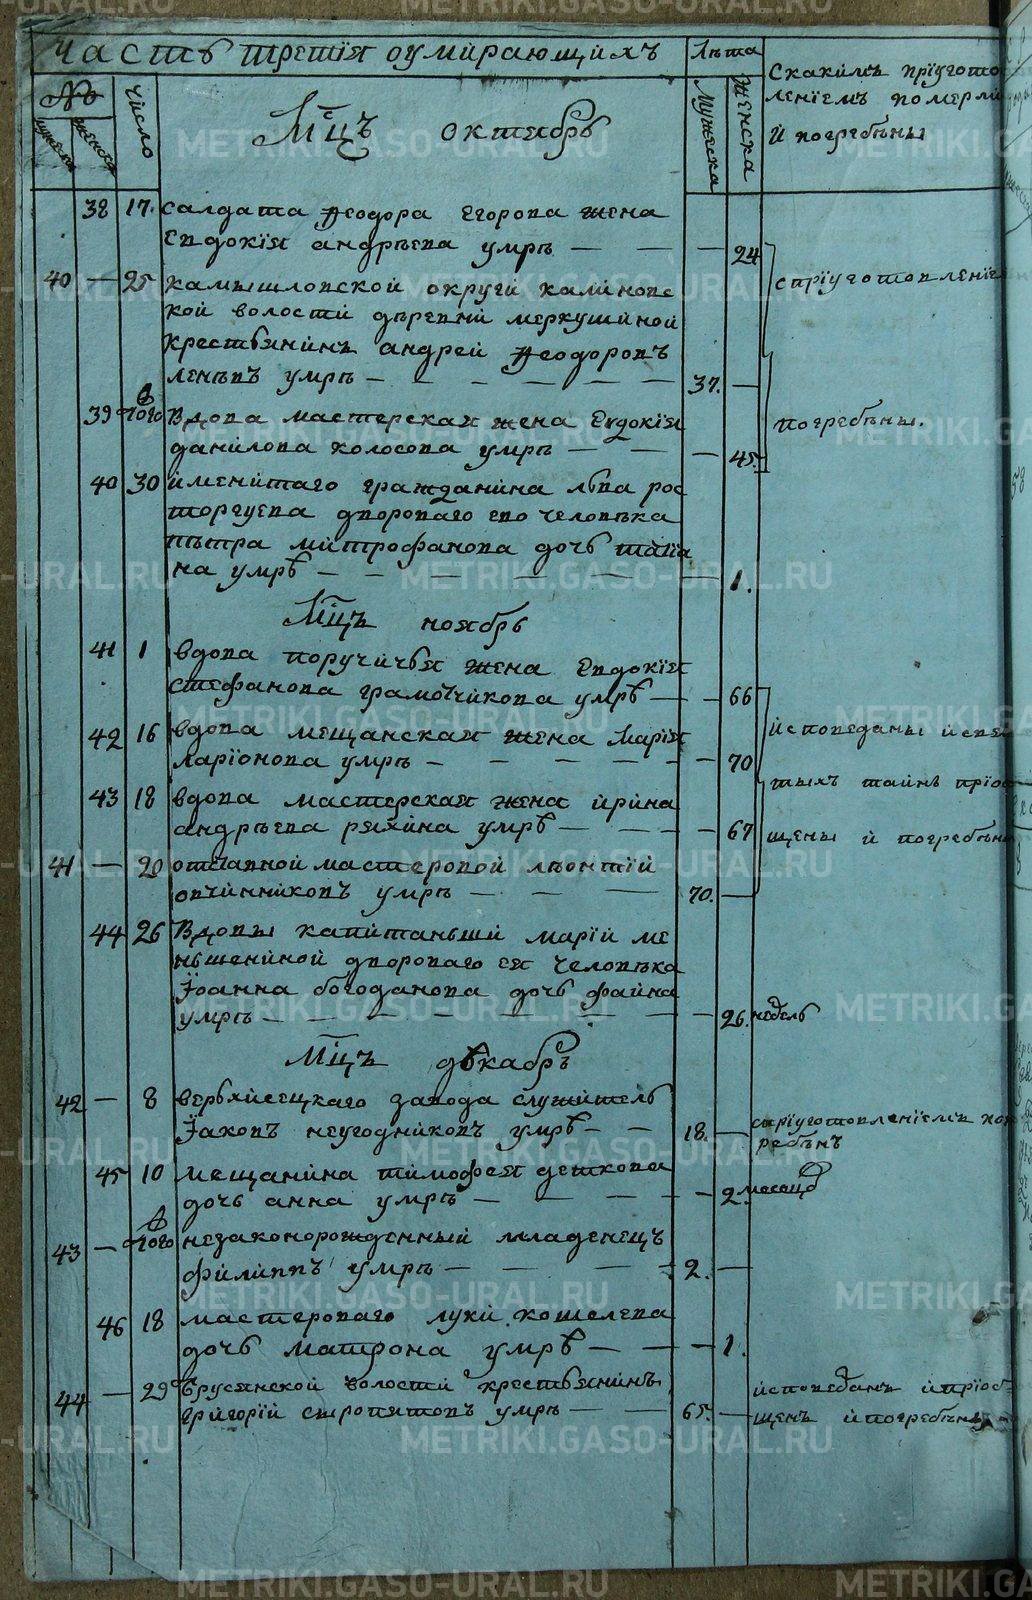 Часть третїя оумирающихъ
Лѣта
Скакимъ прїугото
влениемъ померли
й погребѣны
№
Число
мужеска
женска
Мужеска
Женска
Мⷭ҇цъ октябрь
38 17. салдата Ѳеодора егорова жена
Евдокїя андрѣева умрѣ — — — 24
40 — 25 камышловской округи калиновс
кой волости дѣревни меркушиной
крестьянинъ андрей Ѳеодоровъ
умрѣ — — — — — — 37. —
спрїуготовленїе
39 того Вдова мастерская жена Евдокїя
данилова колосова умрѣ — — — 45.
погребѣны.
40 30 имѣнитаго гражданина лва рос
торгуева двороваго его человѣка
пѣтра митрофанова дочь татїа
на умрѣ — — — — — — 1.
Мⷭ҇цъ ноябрь
41 1 вдова поручичья жена Евдокїя
стефанова грамотчикова умрѣ — — 66
42 16 вдова мещанская жена марїя
ларїонова умрѣ — — — — — 70
43 18 вдова мастерская жена ирина
андрѣева ряхина умрѣ — — — 67
41 — 20 отставной мастеровой лѣонтїй
овчинниковъ умрѣ — — — 70. —
исповеданы и свя
тыхъ таинъ прїоб
щены й погребѣны
44 26 Вдовы капитаньши марїи ме
ньшениной двороваго ея человѣка
Їоанна богоданова дочь файна
умрѣ — — — — — — 26. недель
Мⷭ҇цъ дѣкабръ
42 — 8 верьхйсецкаго завода служитель
Їаковъ неугодниковъ умрѣ — — 18. —
сприуготовленїемъ пог
ребѣнъ
45 10 мещанина тимофея деткова
дочь анна умрѣ — — — — 2 месяцо
43 — того незаконорожденный младенецъ
филиппъ умрѣ — — — — 2. —
46 18 мастероваго луки кошелева
дочь матрона умрѣ — — — 1.
44 — 29 брусянской волости крестьянинъ
григорїй сыропятовъ умрѣ — — 65. —
исповеданъ ипрїоб
щенъ ипогребѣнъ
METRIKI.GASO-URAL.RU